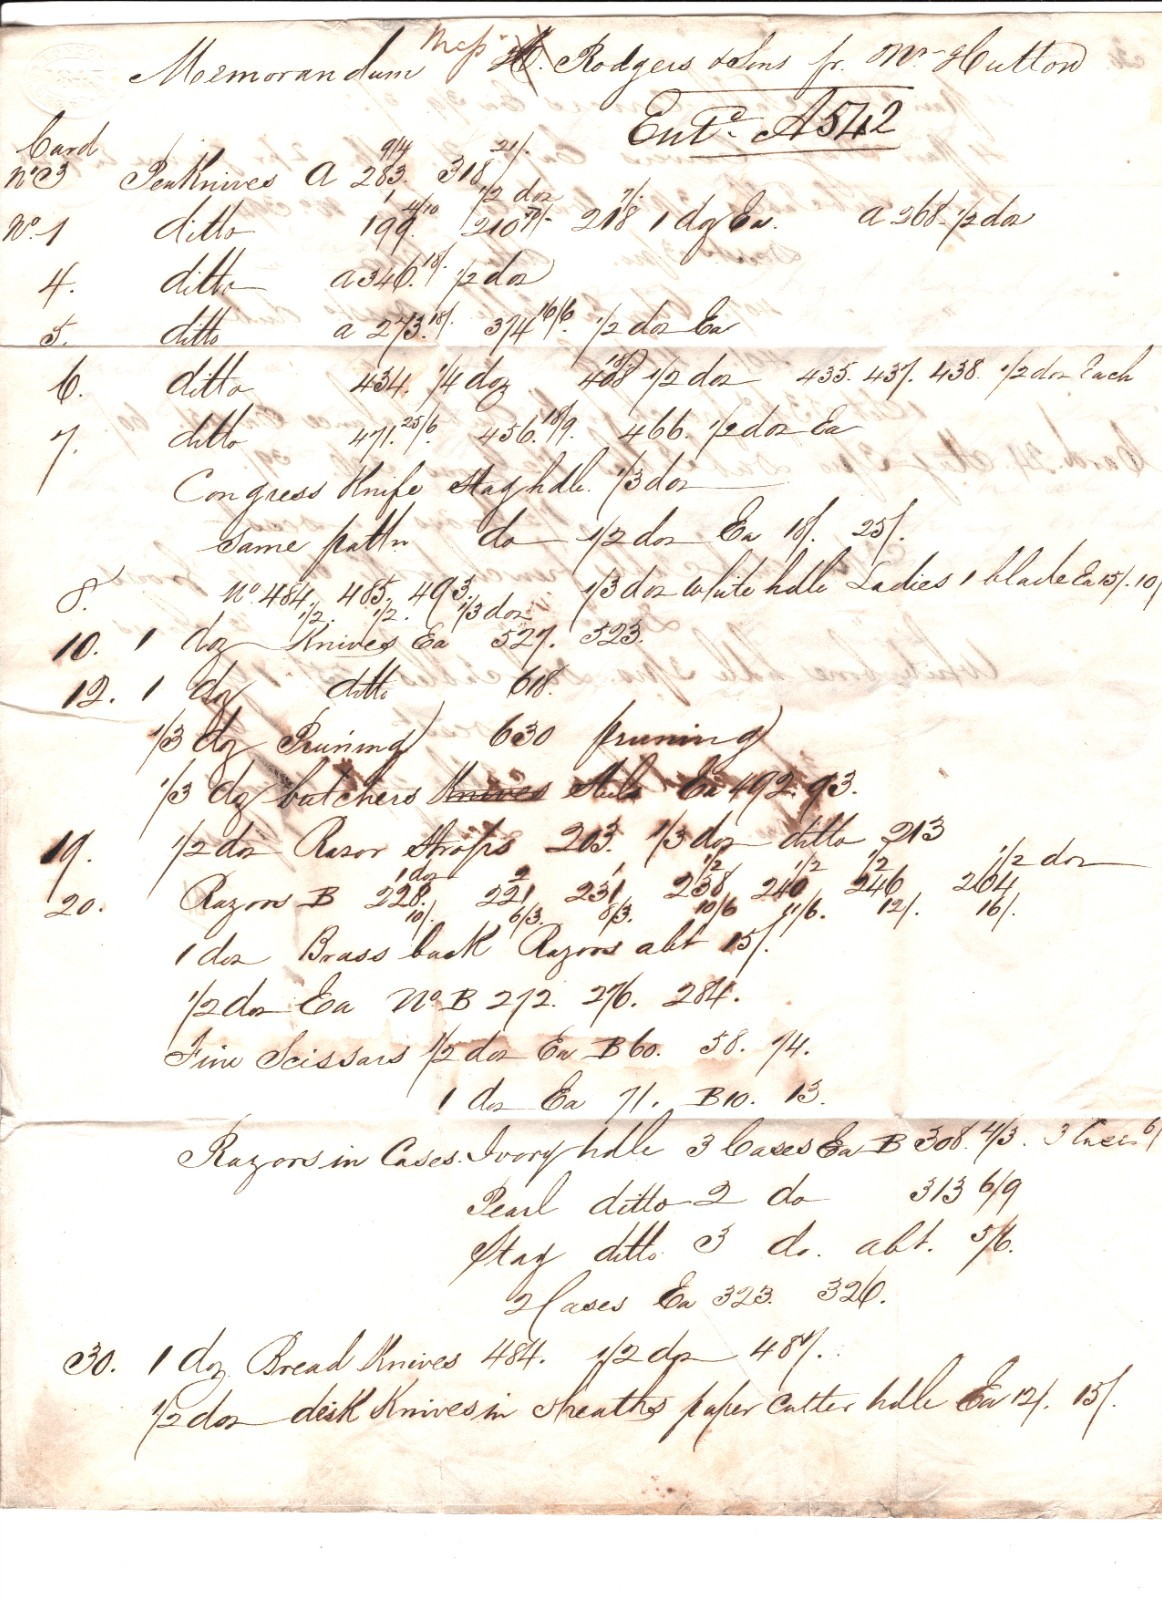 Memorandum Messrs Rodgers & Sons fr. Mr Hutton
Entd A542
Card
No 3 Penknives A 283. 9/4 318 21/. 1/2 doz
No. 1 ditto 199 4/10 210 7/- 218 7/. 1 doz Ea. a 268. 1/2 doz
4. ditto a 346. 18/. 1/2 doz
5. ditto a 273. 18/. 374 16/6. 1/2 doz Ea
6. ditto 434. 1/4 doz 408 1/2 doz 435. 437. 438. 1/2 doz Each
7. ditto 471. 25/6. 456. 18/9. 466. 1/2 doz Ea
Congress Knife Stag hdle. 1/3 doz
Same pattn do 1/2 doz Ea 18/. 25/.
8. No 484, 485, 493. 1/3 doz white hdle Ladies 1 blade Ea 15/. 10/
1/2. 1/2. 1/3 doz
10. 1 doz Knives Ea 527. 523.
12. 1 doz ditto 618.
1/3 doz Pruning 630 pruning
1/3 doz butchers Knives Stels Ea 492. 93.
19. 1/2 doz Razor Strops 203. 1/3 doz ditto 213
1 doz 2 1 1/2 1/2 1/2 1/2 doz
20. Razors B 228. 221 231 238 240 246 264
10/. 6/3. 8/3. 10/6 11/6. 12/. 16/.
1 doz Brass back Razors abt 15/.
1/2 doz Ea No B 272. 276. 284.
Fine Scissars 1/2 doz Ea B 60. 58. 74.
1 doz Ea 71. B 10. 13.
Razors in Cases. Ivory hdle 3 Cases Ea B 308. 4/3. 3 Cases 6/
Pearl ditto 2 do 313 6/9
Stag ditto 3 do. abt. 5/6.
2 Cases Ea 323. 326.
30. 1 doz Bread Knives 484. 1/2 doz 487.
1/2 doz desk Knives in Sheaths paper Cutter hdle Ea 12/. 15/.